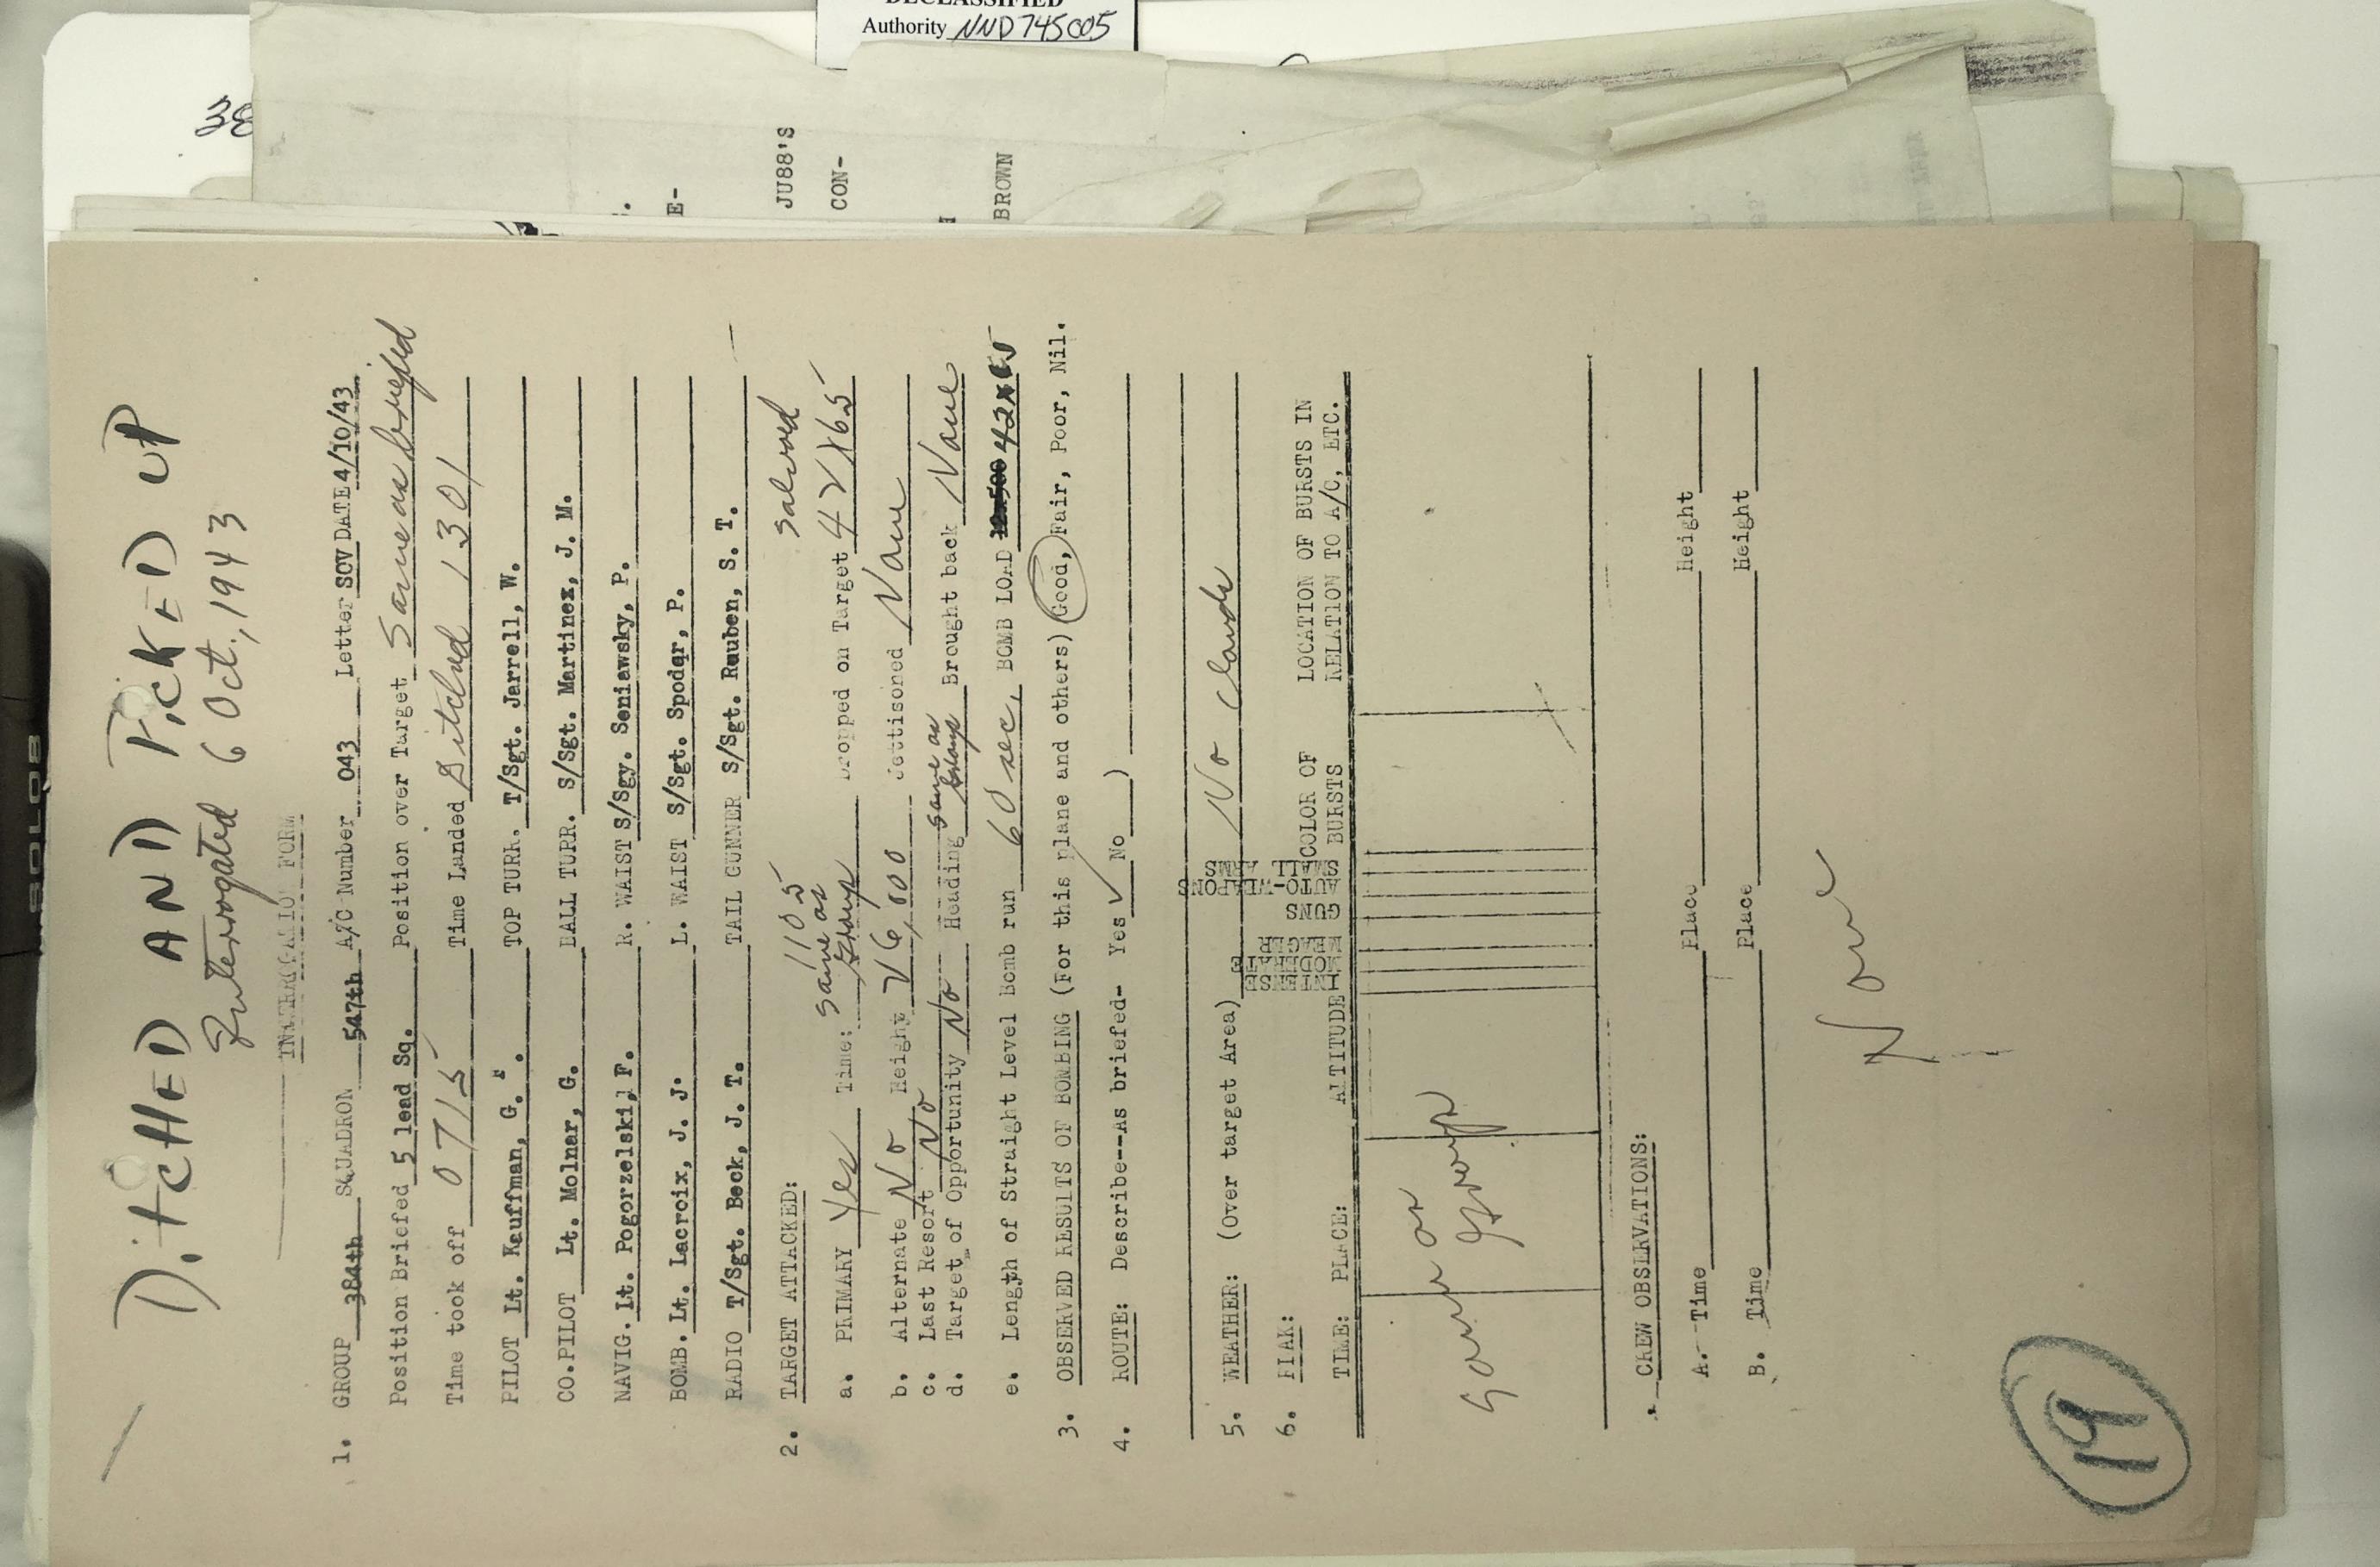 DECLASSIFIED
Authority NND 745005
38
JU88'S
CON-
E-
BROWN
DITCHED AND PICKED UP
Interrogated 6 Oct., 1943
INTERROGATION FORM
1. GROUP 384th SQUADRON 547th A/C Number 043 Letter SOV DATE 4/10/43
Position Briefed 5 lead Sq. Position over Target Same as briefed
Time took off 0715 Time Landed Ditched 1301
PILOT Lt. Kauffman, G. TOP TURR. T/Sgt. Jarrell, W.
CO.PILOT Lt. Molnar, G. BALL TURR. S/Sgt. Martinez, J. M.
NAVIG. Lt. Pogorzelski, F. R. WAIST S/Sgy. Seniawsky, P.
BOMB. Lt. Lacroix, J. J. L. WAIST S/Sgt. Spodar, P.
RADIO T/Sgt. Beck, J. T. TAIL GUNNER S/Sgt. Rauben, S. T.
2. TARGET ATTACKED: 1105 Salvoed
a. PRIMARY Yes Time: Same as Group Dropped on Target 42X65
b. Alternate No Height 26,800 Jettisoned None
c. Last Resort No
d. Target of Opportunity No Heading same as Group Brought back None
e. Length of Straight Level Bomb run 60 sec. BOMB LOAD 12x500 42x65
3. OBSERVED RESULTS OF BOMBING (For this plane and others) Good, Fair, Poor, Nil.
4. ROUTE: Describe--As briefed- Yes ✓ No )
5. WEATHER: (Over target Area) No clouds
6. FLAK:
TIME: PLACE: ALTITUDE INTENSE MODERATE MEAGER GUNS AUTO-WEAPONS SMALL ARMS COLOR OF BURSTS LOCATION OF BURSTS IN RELATION TO A/C, ETC.
Same as
Group
CREW OBSERVATIONS:
A. Time Place Height
B. Time Place Height
None
19